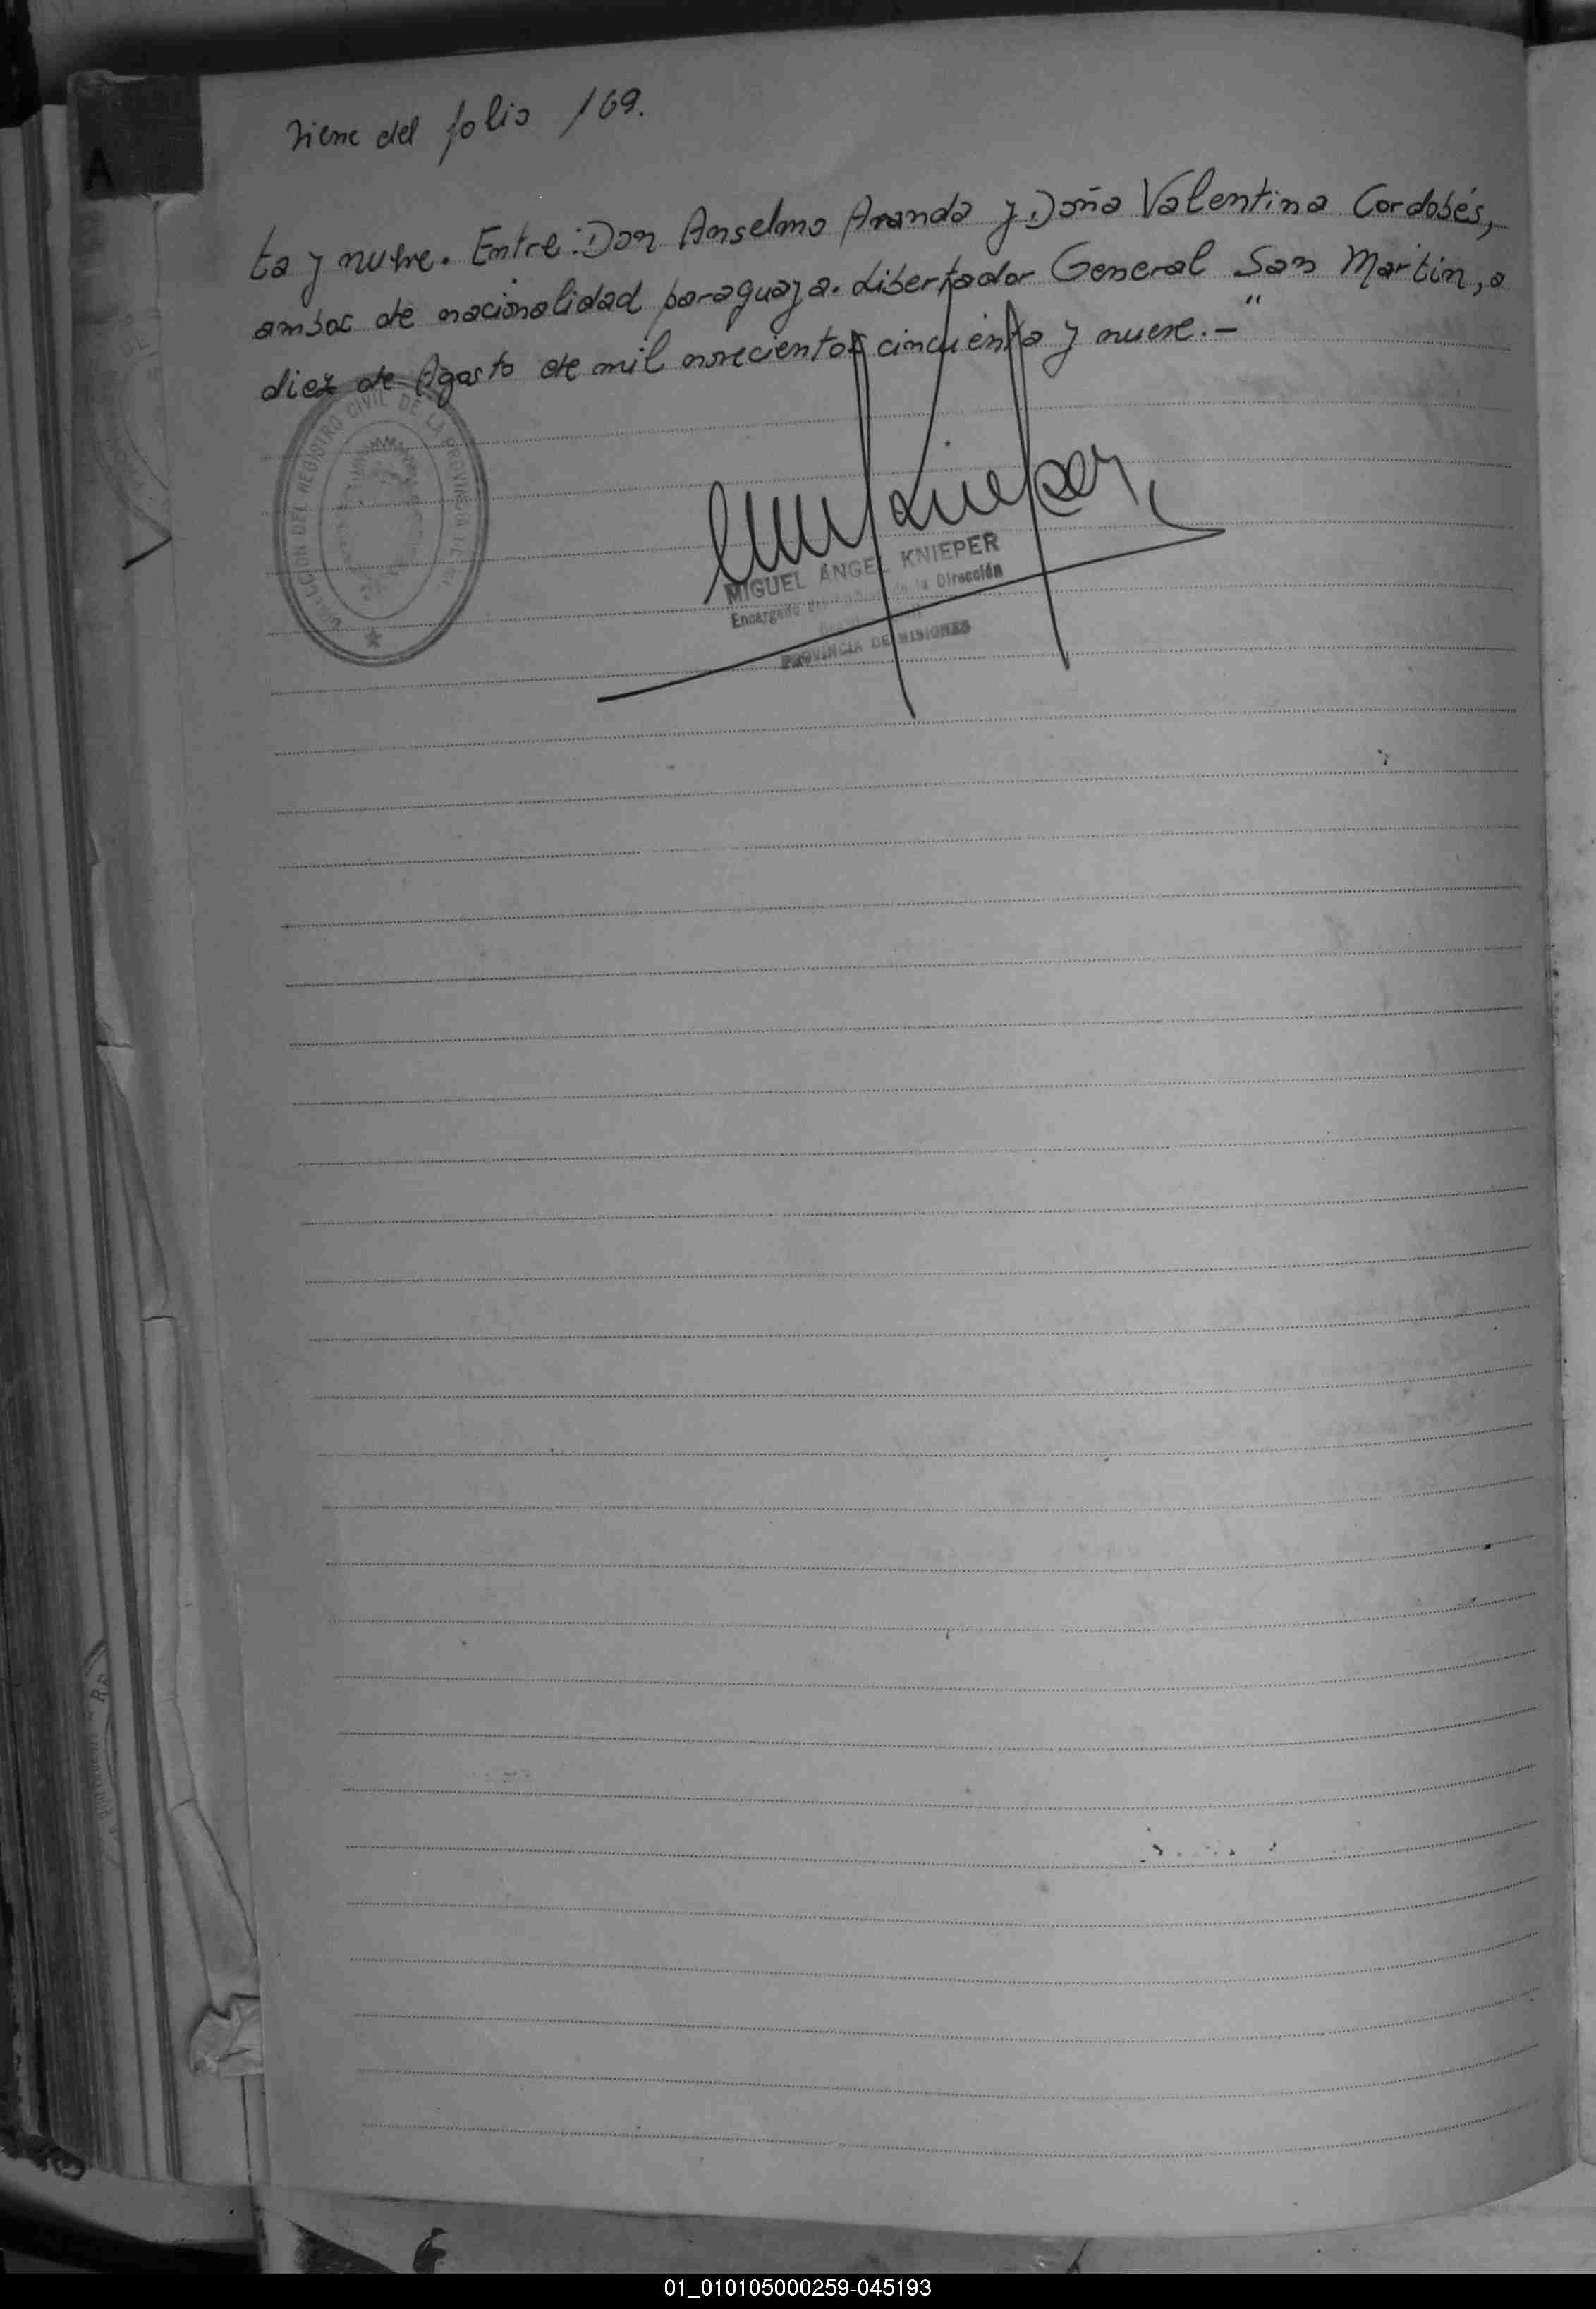 Viene del folio 169.
ta y nueve. Entre: Don Anselmo Aranda y Doña Valentina Cordobés,
ambos de nacionalidad paraguaya. Libertador General San Martin, a
diez de Agosto de mil novecientos cincuenta y nueve. — "
DIRECCION DEL REGISTRO CIVIL DE LA PROVINCIA DE
MIGUEL ANGEL KNIEPER
Encargado de la Dirección
PROVINCIA DE MISIONES
A
01_010105000259-045193